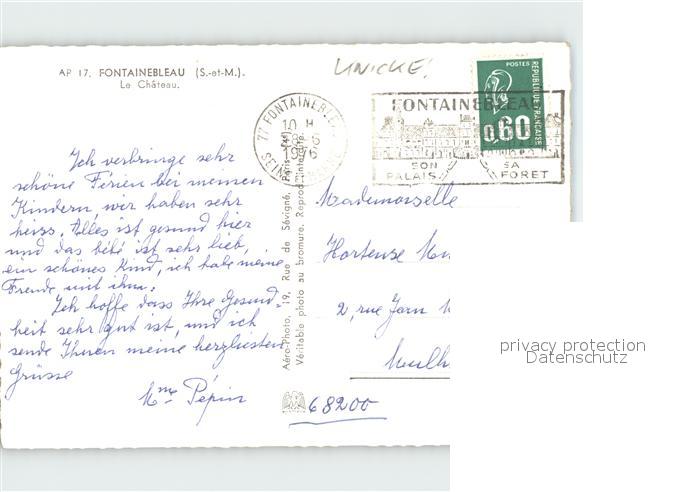 AP 17. FONTAINEBLEAU (S.-et-M.).
Le Château.
UNICKE!
77 FONTAINEBLEAU
10 H
1976
SEINE
POSTES
REPUBLIQUE FRANÇAISE
0,60
FONTAINEBLEAU
SON SA
PALAIS FORET
Ich verbringe sehr
schöne Ferien bei meinen
Kindern, wir haben sehr
heiss. Alles ist gesund hier
und das bébé ist sehr lieb,
ein schönes Kind, ich habe meine
Freude mit ihm.
Ich hoffe dass Ihre Gesund-
heit sehr gut ist, und ich
sende Ihnen meine herzliesten
Grüsse
Mme Pépin
Aéro-Photo, 19, Rue de Sévigné, Paris
Véritable photo au bromure. Reprod. interdite
Mademoiselle
Hortense
2, rue Jean
Mulh
68200
privacy protection
Datenschutz